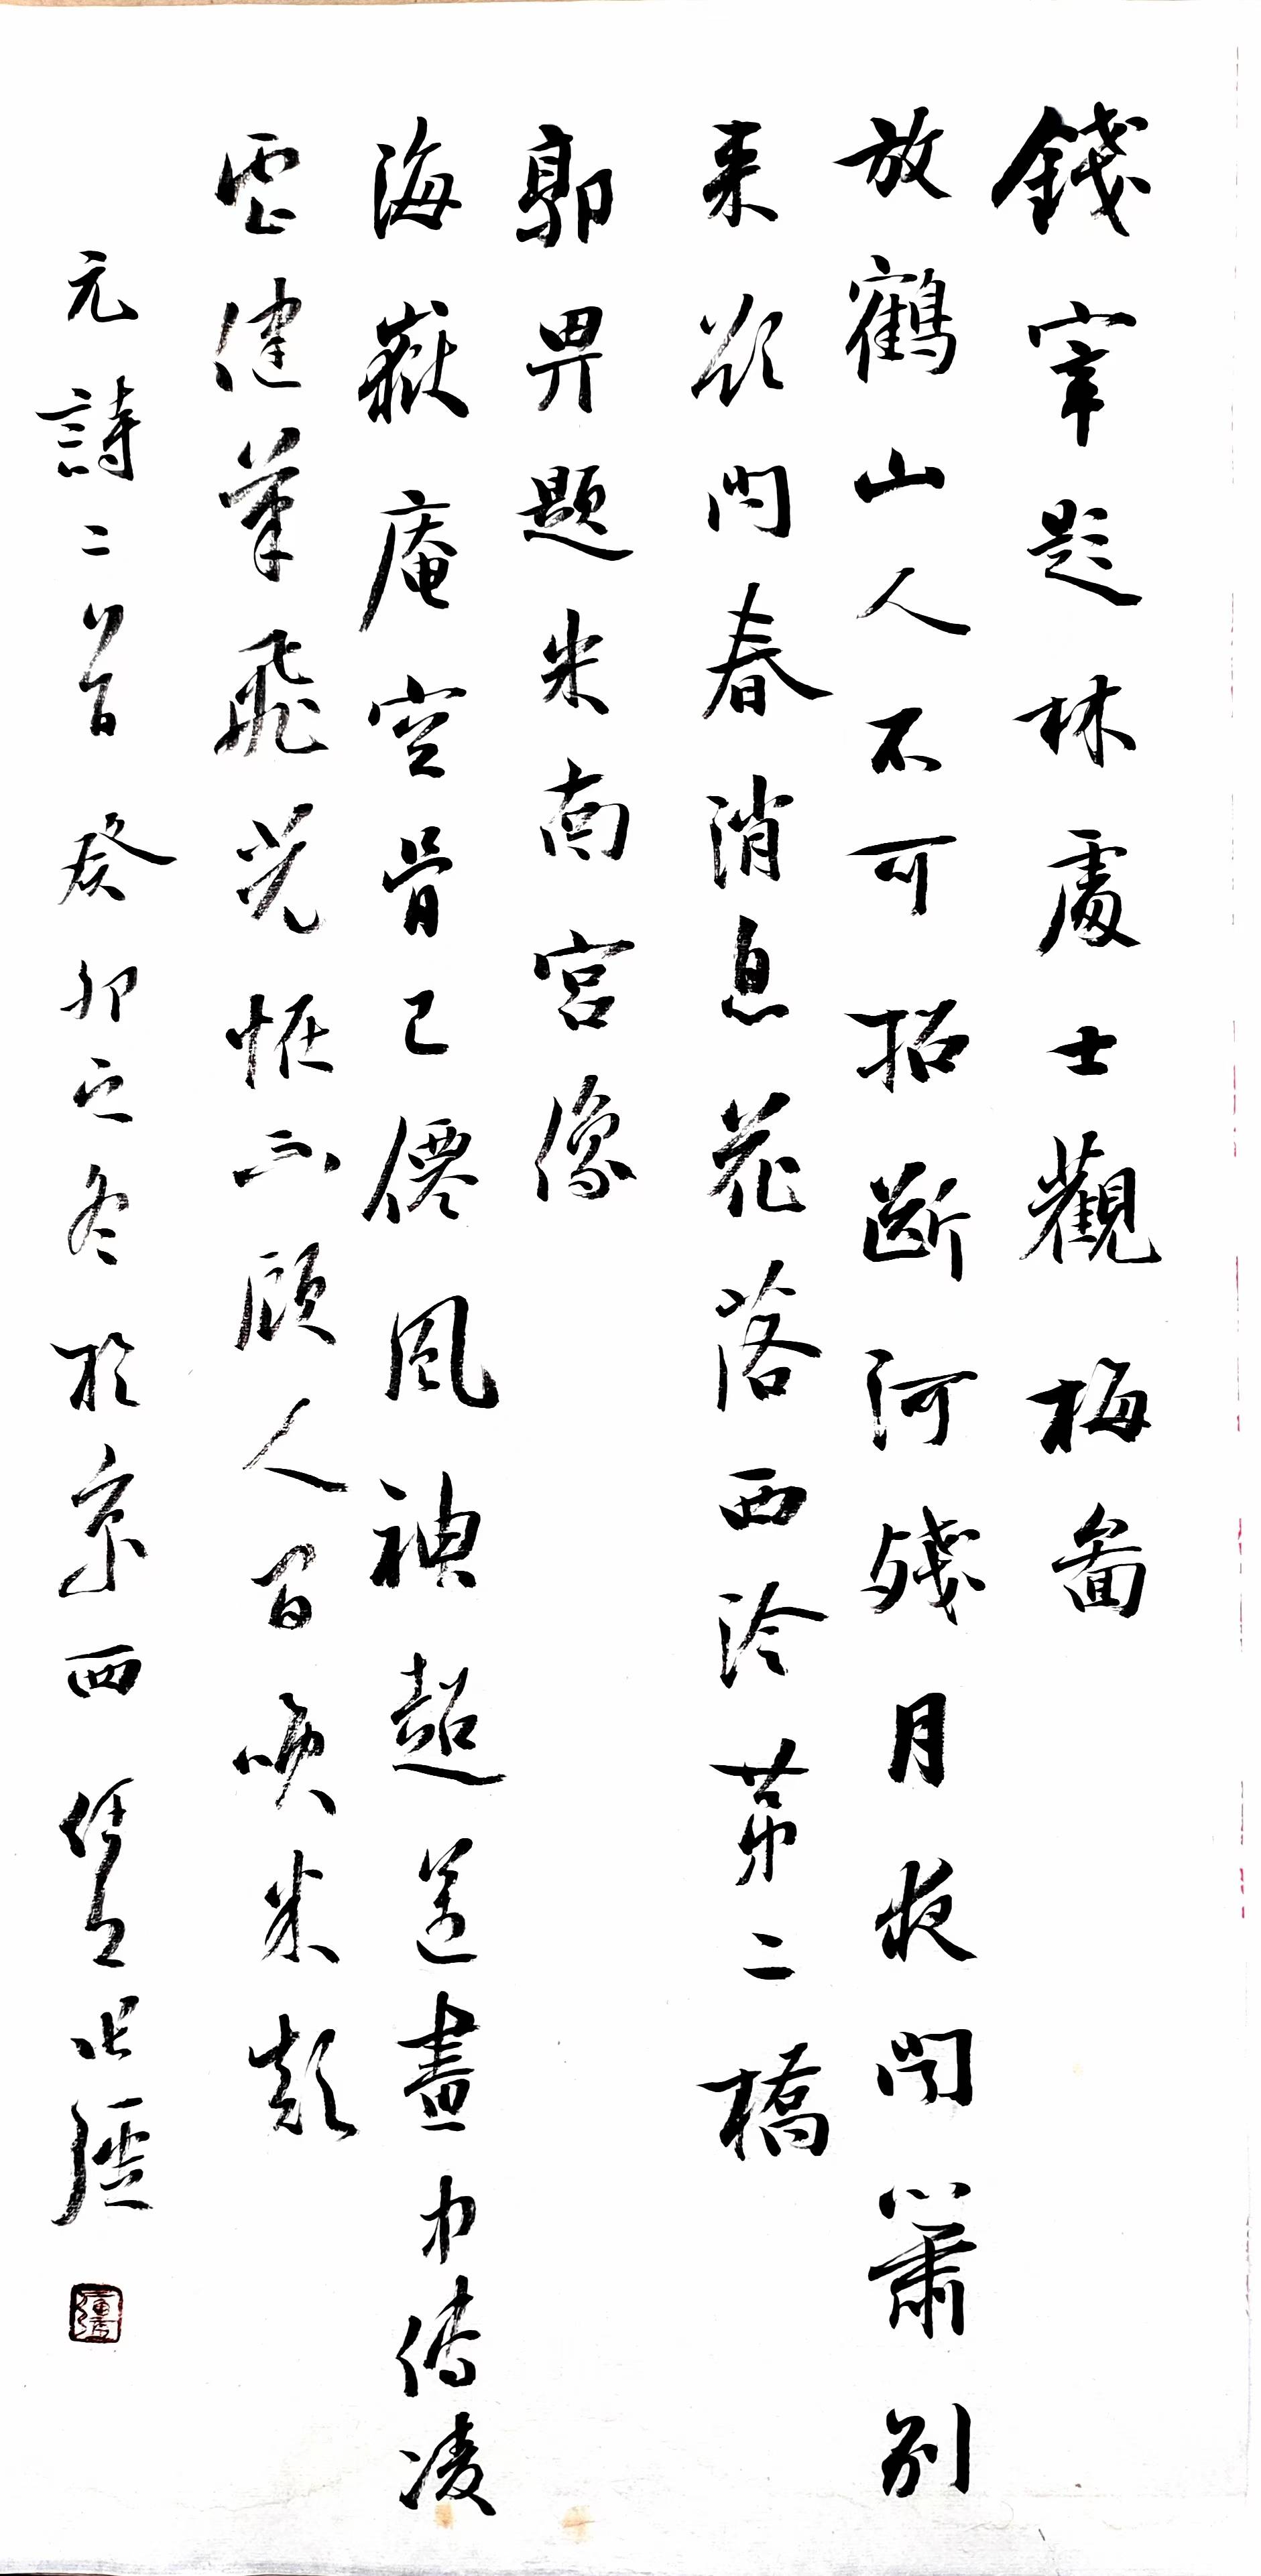 錢宰題林處士觀梅圖
放鶴山人不可招斷河殘月夜聞簫別
来欲問春消息花落西泠苐二橋
郭畀題米南宮像
海嶽庵空骨已僊風神超邁畫中傳凌
雲健筆飛光怪不顧人間喚米顛
元詩二首癸卯之冬於京西